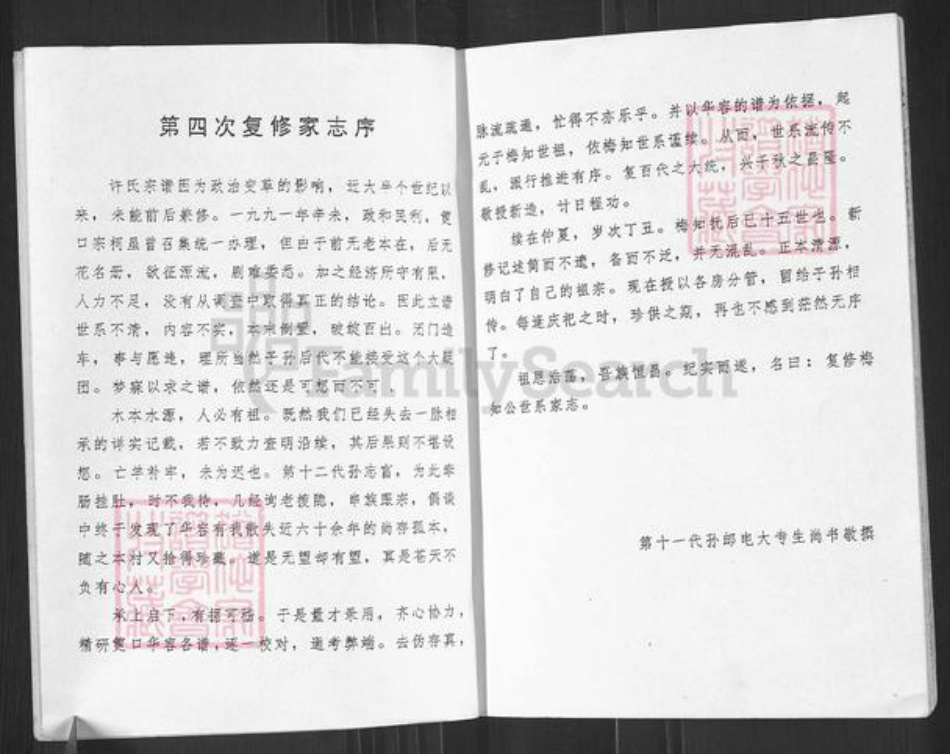 第四次复修家志序
许氏宗谱因为政治变革的影响，近大半个世纪以
来，未能前后兼修。一九九一年辛未，政和民利，筻
口宗柯虽曾召集统一办理，但由于前无老本在，后无
花名册，欲征源流，剧难委悉。加之经济所守有限，
人力不足，没有从调查中取得真正的结论。因此立谱
世系不清，内容不实，本末倒置，破绽百出。闭门造
车，事与愿违，理所当然子孙后代不能接受这个大疑
团。梦寐以求之谱，依然还是可想而不可
木本水源，人必有祖。既然我们已经失去一脉相
承的详实记载，若不致力查明沿续，其后果则不堪设
想。亡羊补牢，未为迟也。第十二代孙志富，为此牵
肠挂肚，时不我待，几经询老搜隐，串族跟宗，倘谈
中终于发现了华容有我散失近六十余年的尚存孤本，
随之本村又拾得珍藏。道是无望却有望，真是苍天不
负有心人。
承上启下，有据可稽。于是量才录用，齐心协力，
精研筻口华容各谱，逐一校对，通考弊端。去伪存真，
脉流疏通，忙得不亦乐乎。并以华容的谱为依据，起
元于梅知世祖，依梅知世系谨续。从而，世系流传不
乱，派行推进有序。复百代之大统，兴千秋之昌隆。
敬授新造，廿日程功。
续在仲夏，岁次丁丑。梅知抚后已十五世也。新
修记述简而不遗，备而不泛，并无混乱。正本清源，
明白了自己的祖宗。现在授以各房分管，留给子孙相
传。每逢庆祀之时，珍供之期，再也不感到茫然无序
了。
祖恩浩荡，吾族恒昌。纪实而遂，名曰：复修梅
知公世系家志。
第十一代孙邮电大专生尚书敬撰
FamilySearch